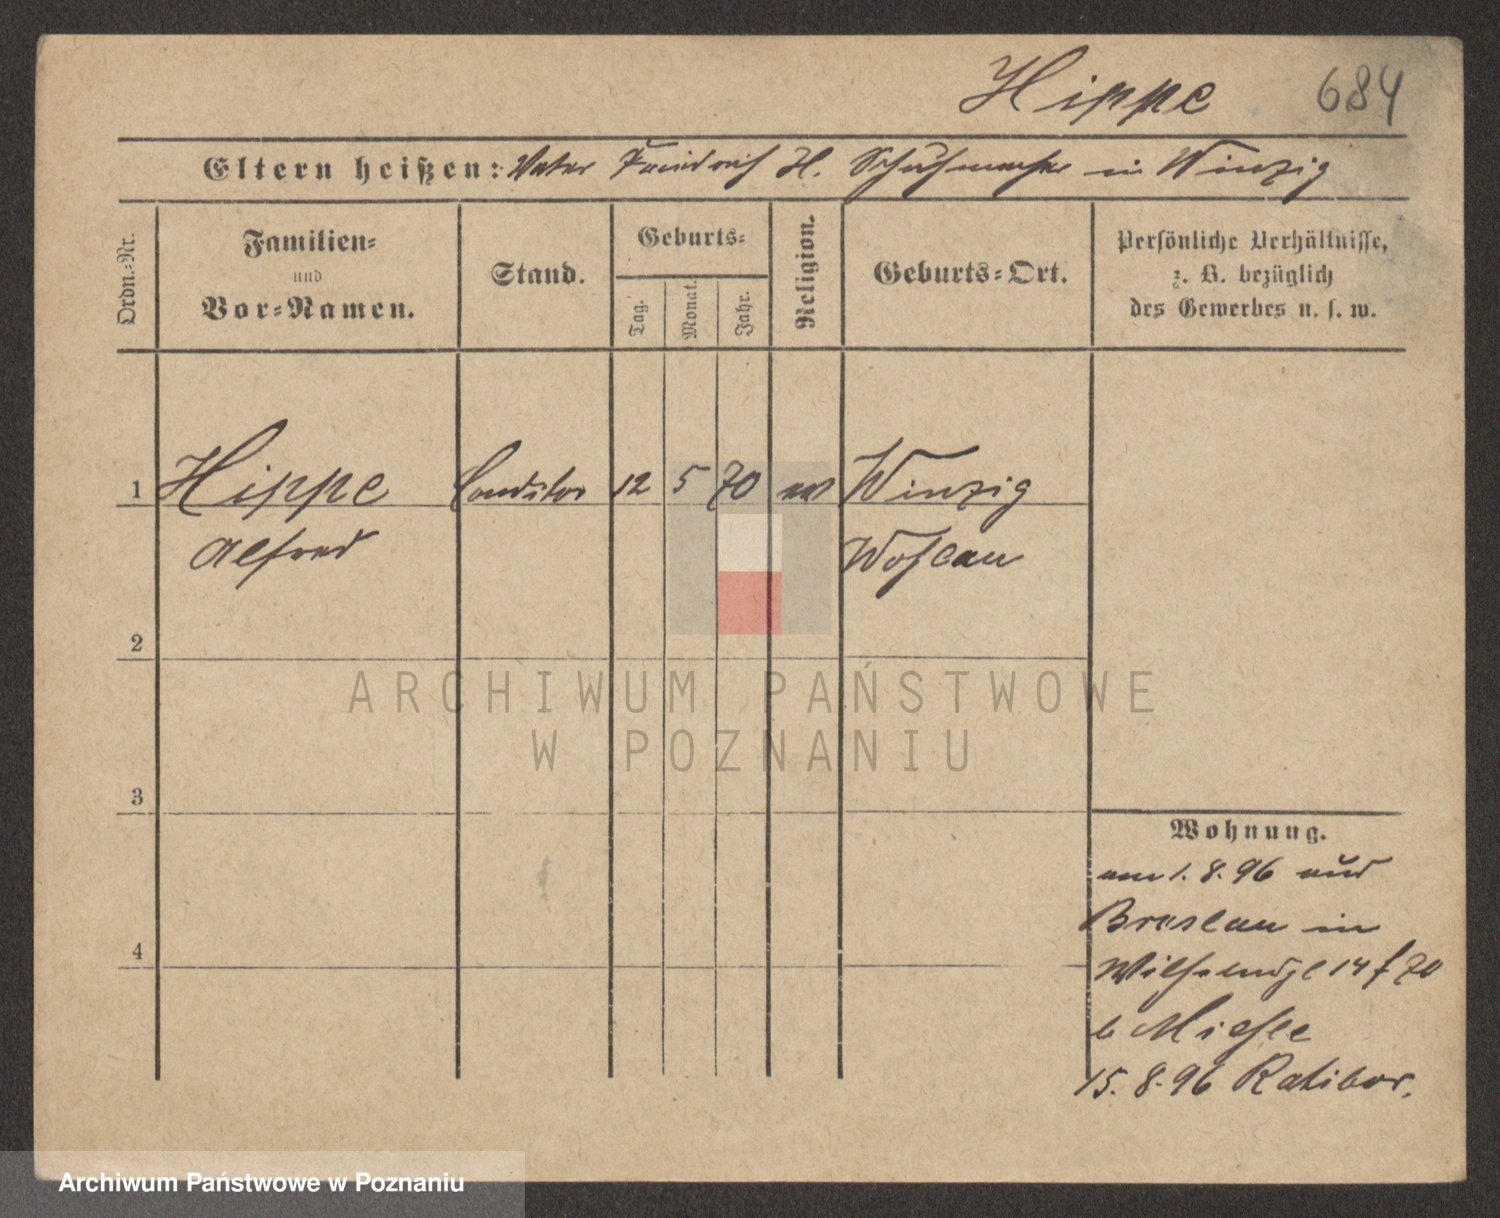 Hippe 684
Eltern heißen: Vater Friedrich H. Schuhmacher in Winzig
Ordn.-Nr.
Familien-
und
Vor-Namen.
Stand.
Geburts-
Tag.
Monat.
Jahr.
Religion.
Geburts-Ort.
Persönliche Verhältnisse,
z. B. bezüglich
des Gewerbes u. s. w.
1 Hippe Conditor 12 5 70 ev Winzig
Alfred Wohlau
2
3
4
Wohnung.
am 1. 8. 96 aus
Breslau in
14 f 70
b Miehle
15. 8. 96 Ratibor.
ARCHIWUM PAŃSTWOWE
W POZNANIU
Archiwum Państwowe w Poznaniu